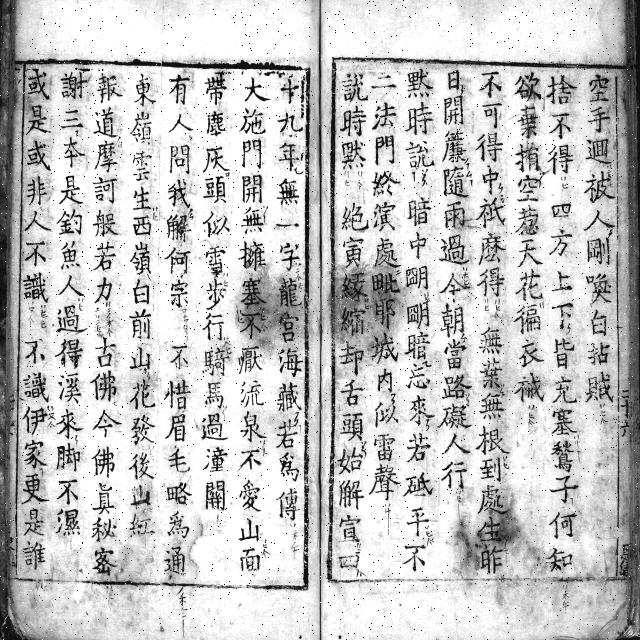 空手迴被人剛喚白拈賊
捨不得四方上下皆充塞鶖子何知
欲棄捐空惹天花徧衣裓
不可得中祇麼得無葉無根到處生昨
日開簾隨雨過今朝當路礙人行
默時說暗中明明暗忘來若砥平不
二法門終演處毗耶城内似雷聲
說時默絶寅綏縮却舌頭始解宣四
十九年無一字龍宮海藏若爲傳
大施門開無擁塞不厭流泉不愛山面
帶塵灰頭似雪步行騎馬過潼關
有人問我解何宗不惜眉毛略爲通
東嶺雲生西嶺白前山花發後山紅
報道摩訶般若力古佛今佛眞秘密
謝三本是釣魚人過得溪來脚不濕
或是或非人不識不識伊家更是誰